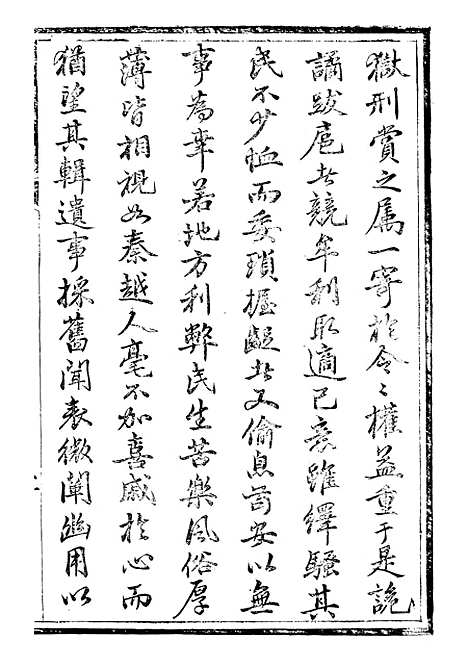 獄刑賞之属一寄於令〻權益重于是詭
譎跋扈者競牟利取適己意雖繹騷其
民不少恤而委瑣握齪者又偷息苟安以無
事為幸若地方利弊民生苦樂風俗厚
薄皆相視如秦越人毫不加喜戚於心而
猶望其輯遺事採舊聞表微闡幽用以